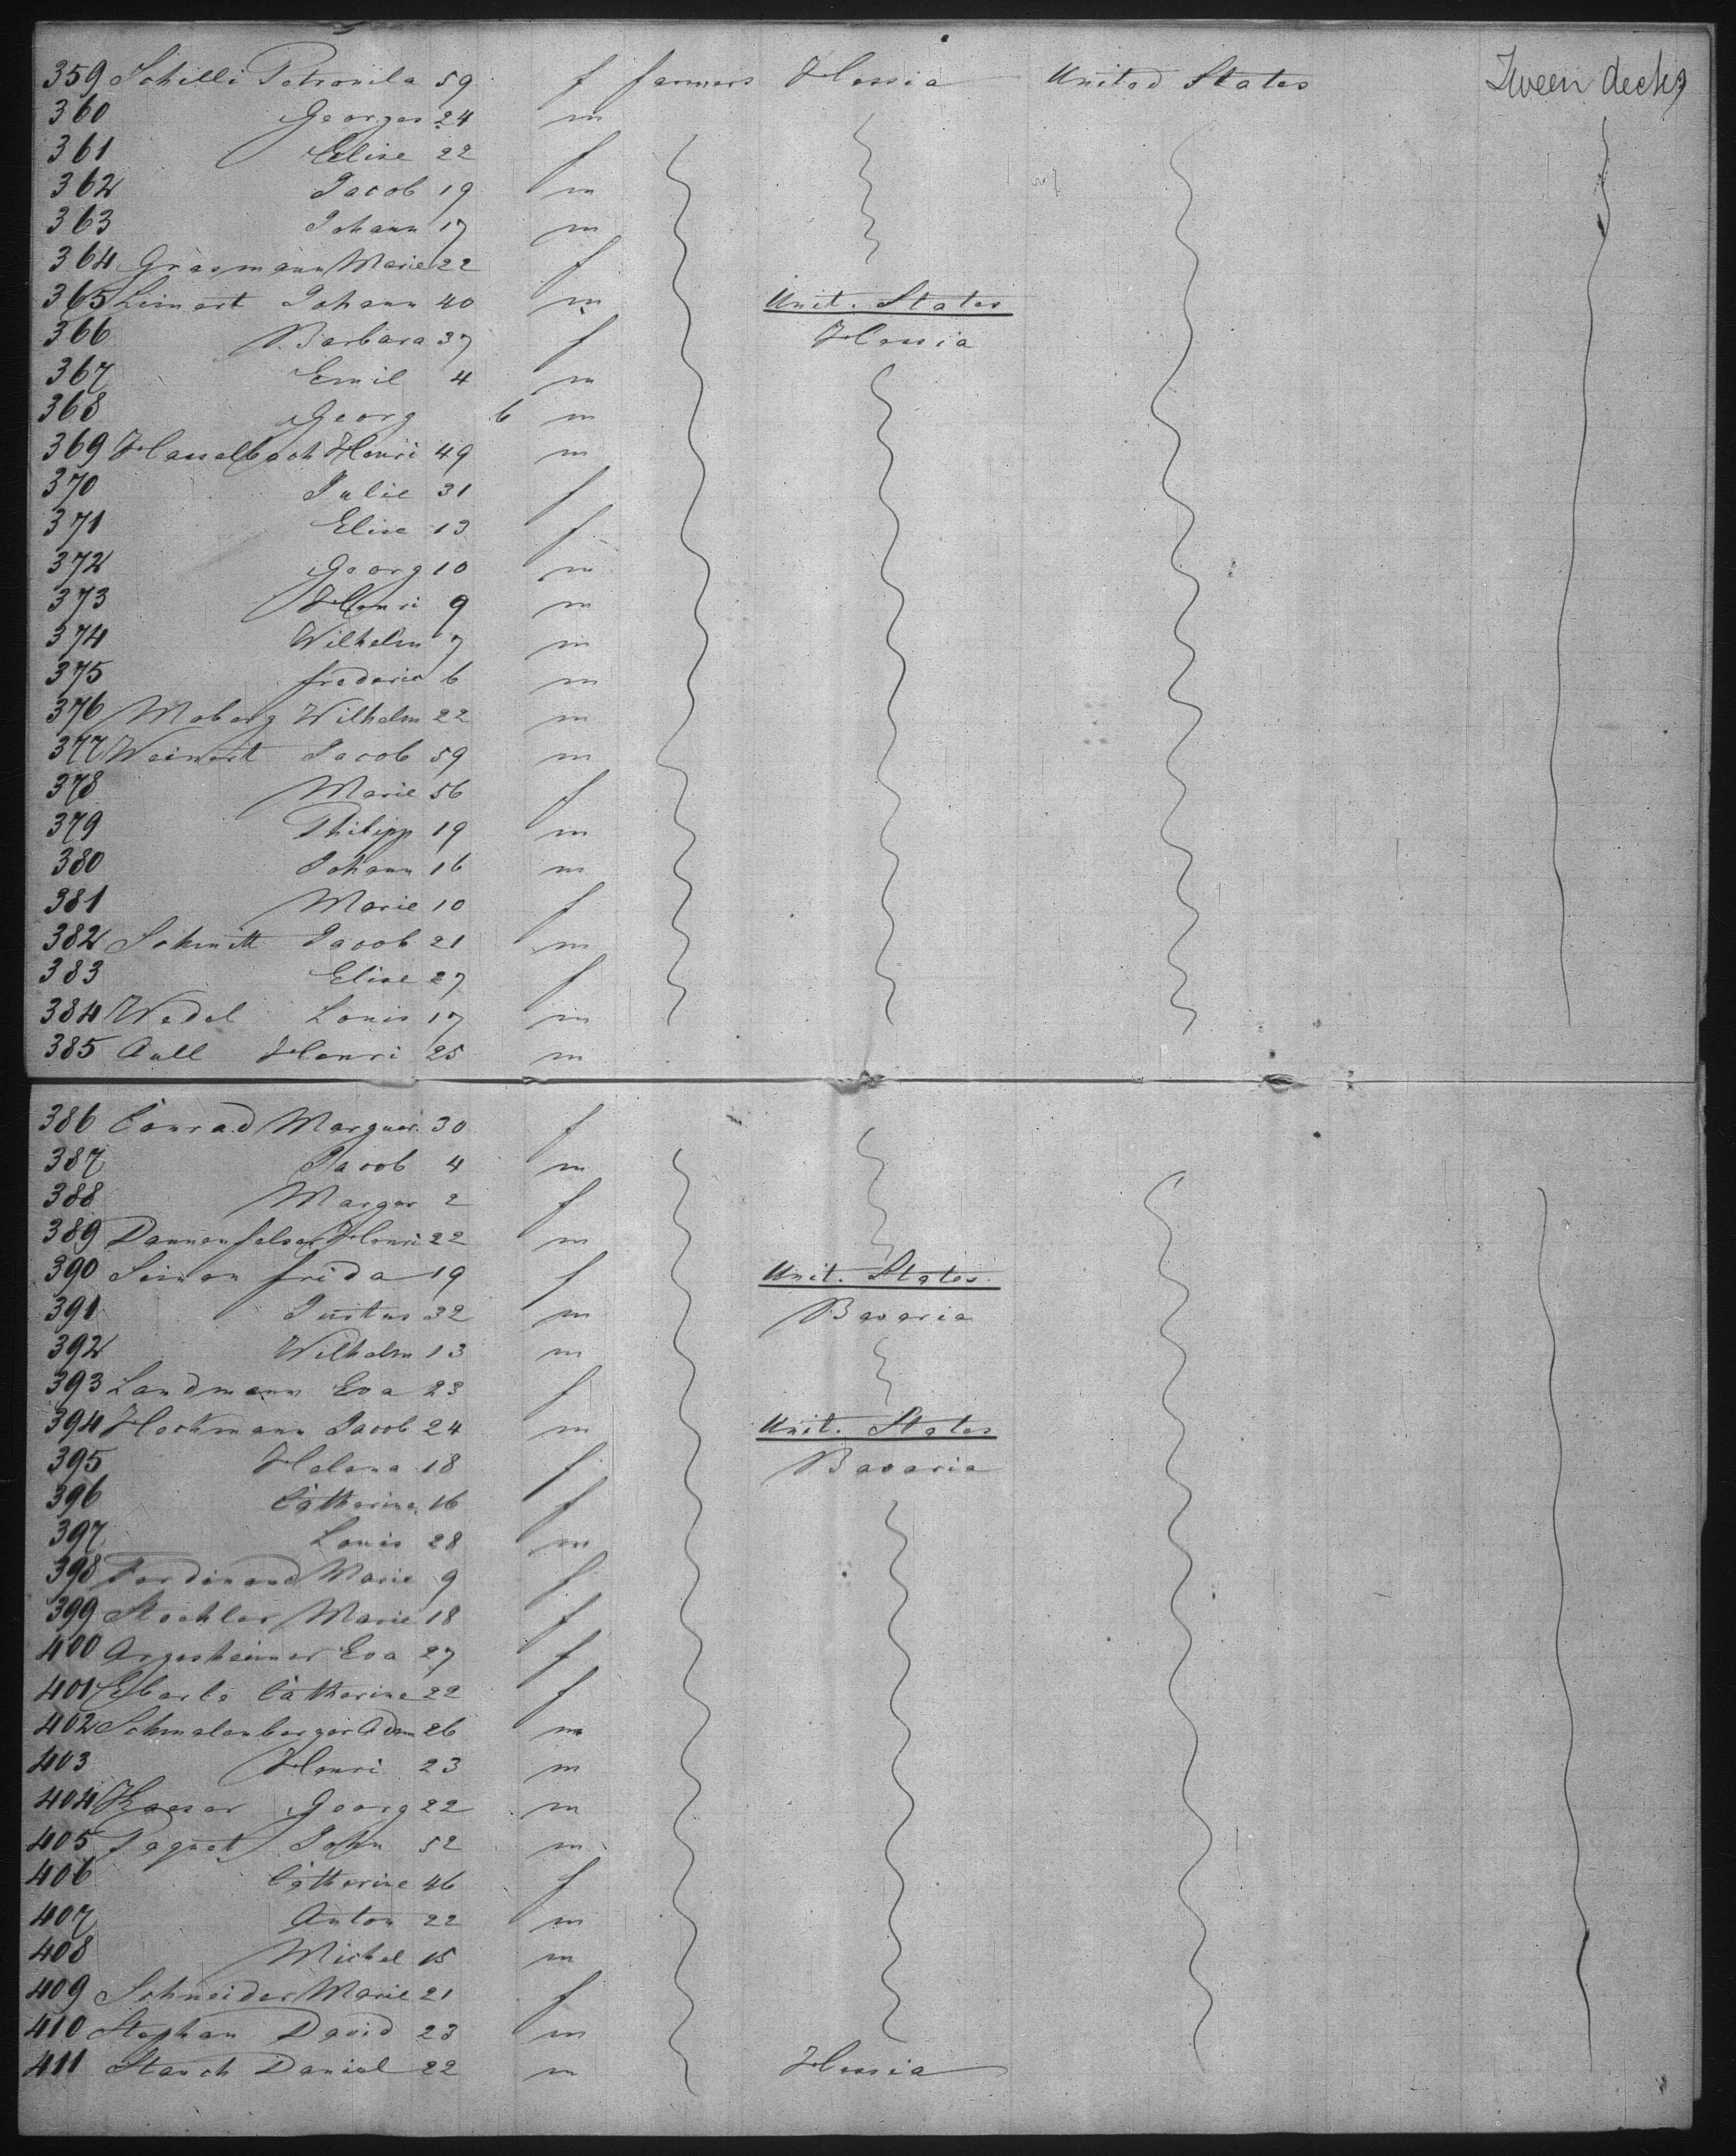 359 Schilli Petronila 59 f farmers Hessia United States Tween decks
360 Georges 24 m
361 Elise 22 f
362 Jacob 19 m
363 Johann 17 m
364 Grasmann Marie 22 f
365 Leinert Johann 40 m Unit. States
366 Barbara 37 f Hessia
367 Emil 4 m
368 Georg 6 m
369 Hasselbach Henri 49 m
370 Julie 31 f
371 Elise 13 f
372 Georg 10 m
373 Henri 9 m
374 Wilhelm 7 m
375 frederic 6 m
376 Moberg Wilhelm 22 m
377 Weinert Jacob 59 m
378 Marie 56 f
379 Philipp 19 m
380 Johann 16 m
381 Marie 10 f
382 Schmitt Jacob 21 m
383 Elise 27 f
384 Wedel Louis 17 m
385 Aull Henri 25 m
386 Conrad Marguer. 30 f
387 Jacob 4 m
388 Marger 2 f
389 Dannenfelser Henri 22 m
390 Simon frida 19 f Unit. States
391 Justus 32 m Bavaria
392 Wilhelm 13 m
393 Landmann Eva 23 f
394 Heckmann Jacob 24 m Unit. States
395 Helena 18 f Bavaria
396 Catharine 16 f
397 Louis 28 m
398 Ferdinand Marie 9 f
399 Stoehler Marie 18 f
400 Argesheimer Eva 27 f
401 Eberle Catharine 22 f
402 Schmalenberger Adam 26 m
403 Henri 23 m
404 Kaeser Georg 22 m
405 Paquet John 52 m
406 Catharine 46 f
407 Anton 22 m
408 Michel 15 m
409 Schneider Marie 21 f
410 Stephan David 23 m
411 Stauch Daniel 22 m Hessia